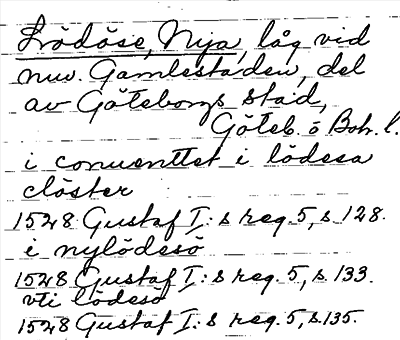 Lödöse, Nya, låg vid
nuv. Gamlestaden, del
av Göteborgs stad,
Göteb. o Boh. l.
i conuenttet i lödesa
clöster
1528 Gustaf I:s reg. 5, s. 128.
i nylödesö
1528 Gustaf I:s reg. 5, s. 133.
vti lödesö
1528 Gustaf I:s reg. 5, s. 135.